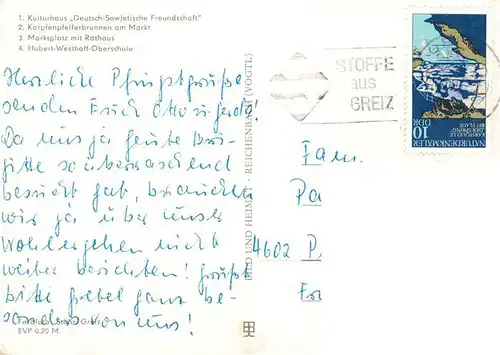 1. Kulturhaus „Deutsch-Sowjetische Freundschaft"
2. Karpfenpfeiferbrunnen am Markt
3. Marktplatz mit Rathaus
4. Hubert-Westhoff-Oberschule
Herzliche Pfingstgrüße
senden Euch Ottos jetzt!
Da uns ja heute Bri-
gitte so überraschend
besucht hat, brauchen
wir ja über unser
Wohlergehen nicht
weiter berichten! Grüßt
bitte ganz be-
sonders von uns!
Foto: Grei
EVP 0,20 M
BILD UND HEIMAT · REICHENBACH (VOGTL)
STOFFE
aus
GREIZ
NATURDENKMÄLER
DDR
10
Fam.
Pa
4602 P